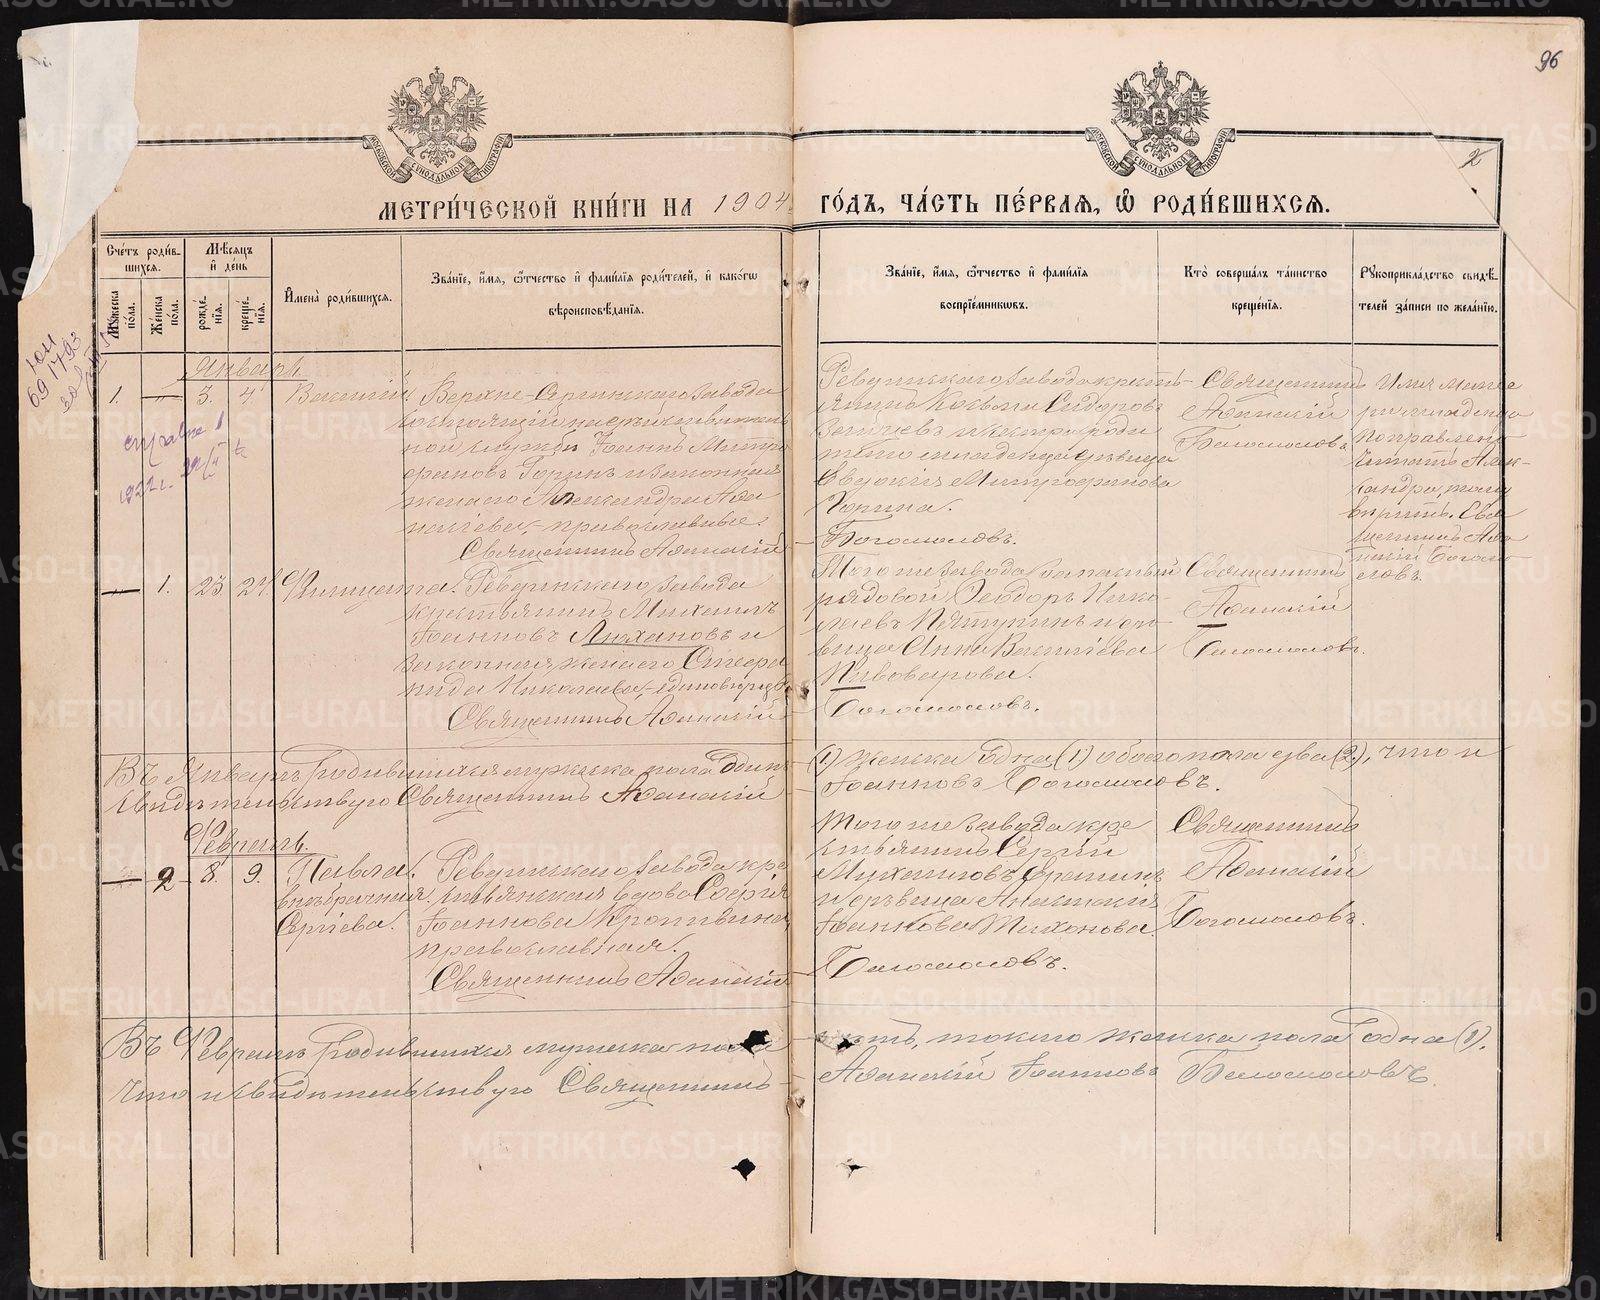 96
2
МЕТРИ́ЧЕСКОЙ КНИ́ГИ НА 1904 ГО́ДЪ, ЧА́СТЬ ПЕ́РВАЯ, Ѽ РОДИ́ВШИХСЯ.
Сче́тъ роди́в-
шихся.
Мѣ́сяцъ
и҆ день
Му́жеска
по́ла.
Же́нска
по́ла.
рожде́-
нїя.
креще́-
нїя.
И҆мена̀ роди́вшихся.
Зва́нїе, и҆́мя, ѻ҆́тчество и҆ фами́лїя роди́телей, и҆ како́гѡ
вѣроисповѣ́данїя.
Зва́нїе, и҆́мя, ѻ҆́тчество и҆ фами́лїя
воспрїе́мниковъ.
Кто̀ соверша́лъ та́инство
креще́нїя.
Рꙋкоприкла́дство свидѣ́-
телей за́писи по жела́нїю.
Январь.
1. — 3. 4 Василій.
Верхне-Сергинскаго завода
состоящій на действитель
ной службѣ Іоаннъ Митро
фановъ Горинъ и законная
жена его Александра Афа
насьева, православные.
Священникъ Афанасій
Ревдинскаго завода кресть-
янинъ Косьма Сидоровъ
дѣвица
Евдокія Митрофанова
Горина.
Богомоловъ.
Священникъ
Афанасій
Богомоловъ.
Имя матери
младенца
поправлено
читать Алек-
сандра, тому
вѣрить. Свя
щенникъ Афа
насій Богомо-
ловъ.
— 1. 23. 24
Ревдинскаго завода
крестьянинъ Михаилъ
Іоанновъ Люхановъ и
законная жена его Стефа
нида Николаева, единовѣрцы.
Священникъ Афанасій
Того же завода запасный
рядовой Ѳеодоръ Нико-
лаевъ Пѣтухинъ и дѣ-
вица Анна Васильева
Пивоварова.
Богомоловъ.
Священникъ
Афанасій
Богомоловъ.
Въ Январѣ родившихся мужеска пола одинъ (1) женска одна (1) обоего пола два (2), что и
свидѣтельствую Священникъ Афанасій Іоанновъ Богомоловъ.
Февраль.
— 2 8. 9. Павла.
внѣбрачная.
Сергіева.
Ревдинскаго завода кре
стьянская вдова Софія
Іоаннова Кропивина,
православная.
Священникъ Афанасій
Того же завода кре
стьянинъ Сергій
Михаиловъ
и дѣвица Анастасія
Іоаннова Тихонова.
Богомоловъ.
Священникъ
Афанасій
Богомоловъ.
Въ Февралѣ родившихся мужеска пола нѣтъ, токмо женска пола одна (1).
Что и свидѣтельствую Священникъ Афанасій Іоанновъ Богомоловъ.
METRIKI.GASO-URAL.RU